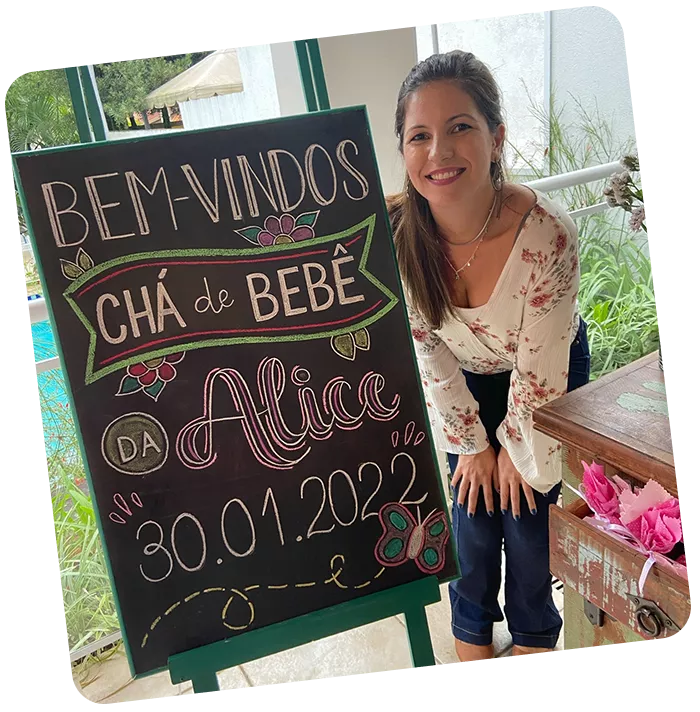 BEM-VINDOS
CHÁ de BEBÊ
DA Alice
30.01.2022